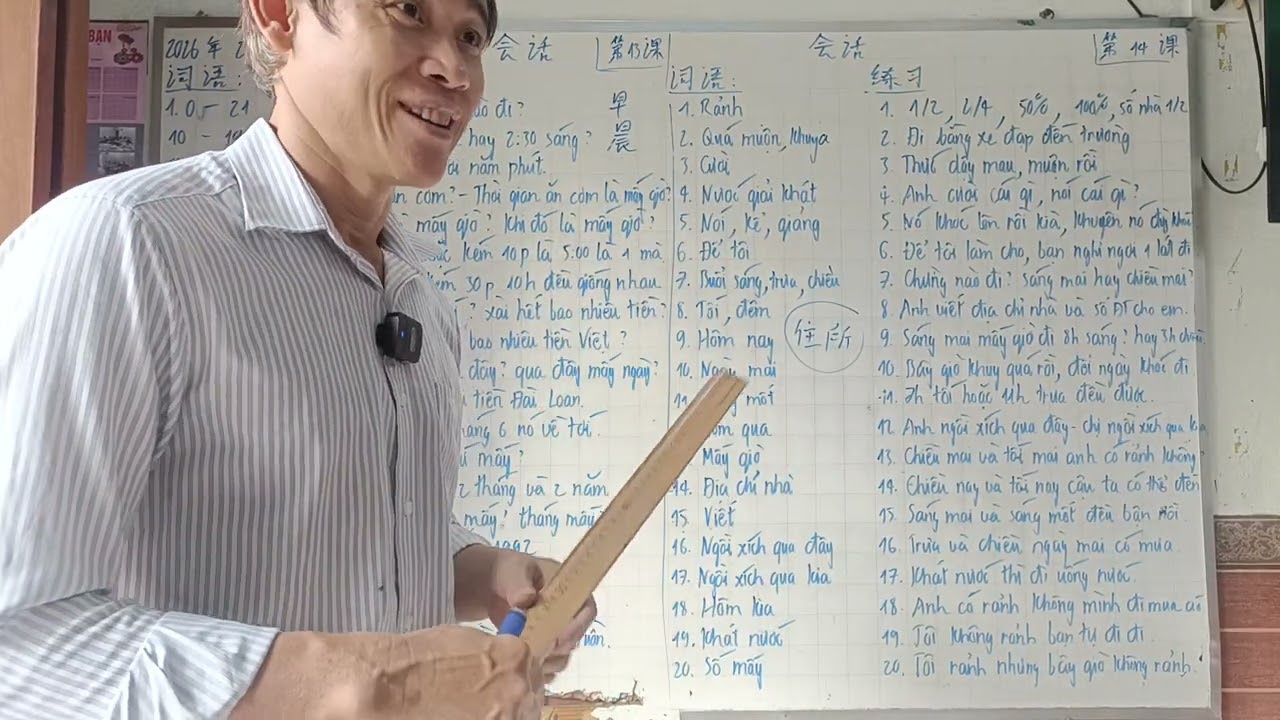 BẠN
2026年 2
会话
第13课
词语:
1.0 - 21
10 -
早
晨
đi?
hay 2:30 sáng?
năm phút.
cơm? - Thời gian ăn cơm là mấy giờ?
mấy giờ? Khi đó là mấy giờ?
kém 10p là 5:00 là 1 mà
30p 10h đều giống nhau
? xài hết bao nhiêu tiền?
bao nhiêu tiền Việt?
đây? qua đây mấy ngày?
tiền Đài Loan.
tháng 6 nó về tới.
mấy?
2 tháng và 2 năm
mấy? tháng mấy?
1992
会话
第14课
词语:
1. Rảnh
2. Quá muộn, khuya
3. Cười
4. Nước giải khát
5. Nói, kể, giảng
6. Để tôi
7. Buổi sáng, trưa, chiều
8. Tối, đêm
9. Hôm nay
住所
10. Ngày mai
11. mốt
qua
Mấy giờ
14. Địa chỉ nhà
15. Viết
16. Ngồi xích qua đây
17. Ngồi xích qua kia
18. Hôm kia
19. Khát nước
20. Số mấy
练习
1. 1/2, 2/4, 50%, 100%, số nhà 1/2
2. Đi bằng xe đạp đến trường
3. Thức dậy mau, muộn rồi
4. Anh cười cái gì, nói cái gì?
5. Nó khóc lớn rồi kìa, khuyên nó đừng khóc
6. Để tôi làm cho, bạn nghỉ ngơi 1 lát đi
7. Chừng nào đi? sáng mai hay chiều mai?
8. Anh viết địa chỉ nhà và số ĐT cho em.
9. Sáng mai mấy giờ đi 8h sáng? hay 3h chiều.
10. Bây giờ khuya quá rồi, đổi ngày khác đi
11. 7h tối hoặc 11h trưa đều được.
12. Anh ngồi xích qua đây - chị ngồi xích qua kia
13. Chiều mai và tối mai anh có rảnh không?
14. Chiều nay và tối nay cậu ta có thể đến
15. Sáng mai và sáng mốt đều bận rồi.
16. Trưa và chiều ngày mai có mưa
17. Khát nước thì đi uống nước.
18. Anh có rảnh không mình đi mua
19. Tôi không rảnh bạn tự đi đi.
20. Tôi rảnh nhưng bây giờ không rảnh.